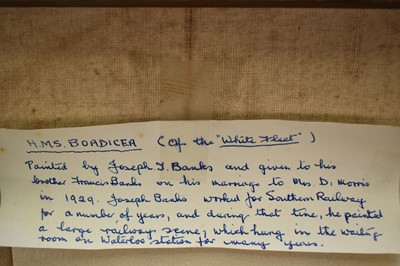 H.M.S. BOADICEA (Of the "White Fleet")
Painted by Joseph J. Banks and given to his
brother Francis Banks on his marriage to Mrs D. Morris
in 1929. Joseph Banks worked for Southern Railway
for a number of years, and during that time, he painted
a large railway scene, which hung in the waiting
room on Waterloo station for many years.